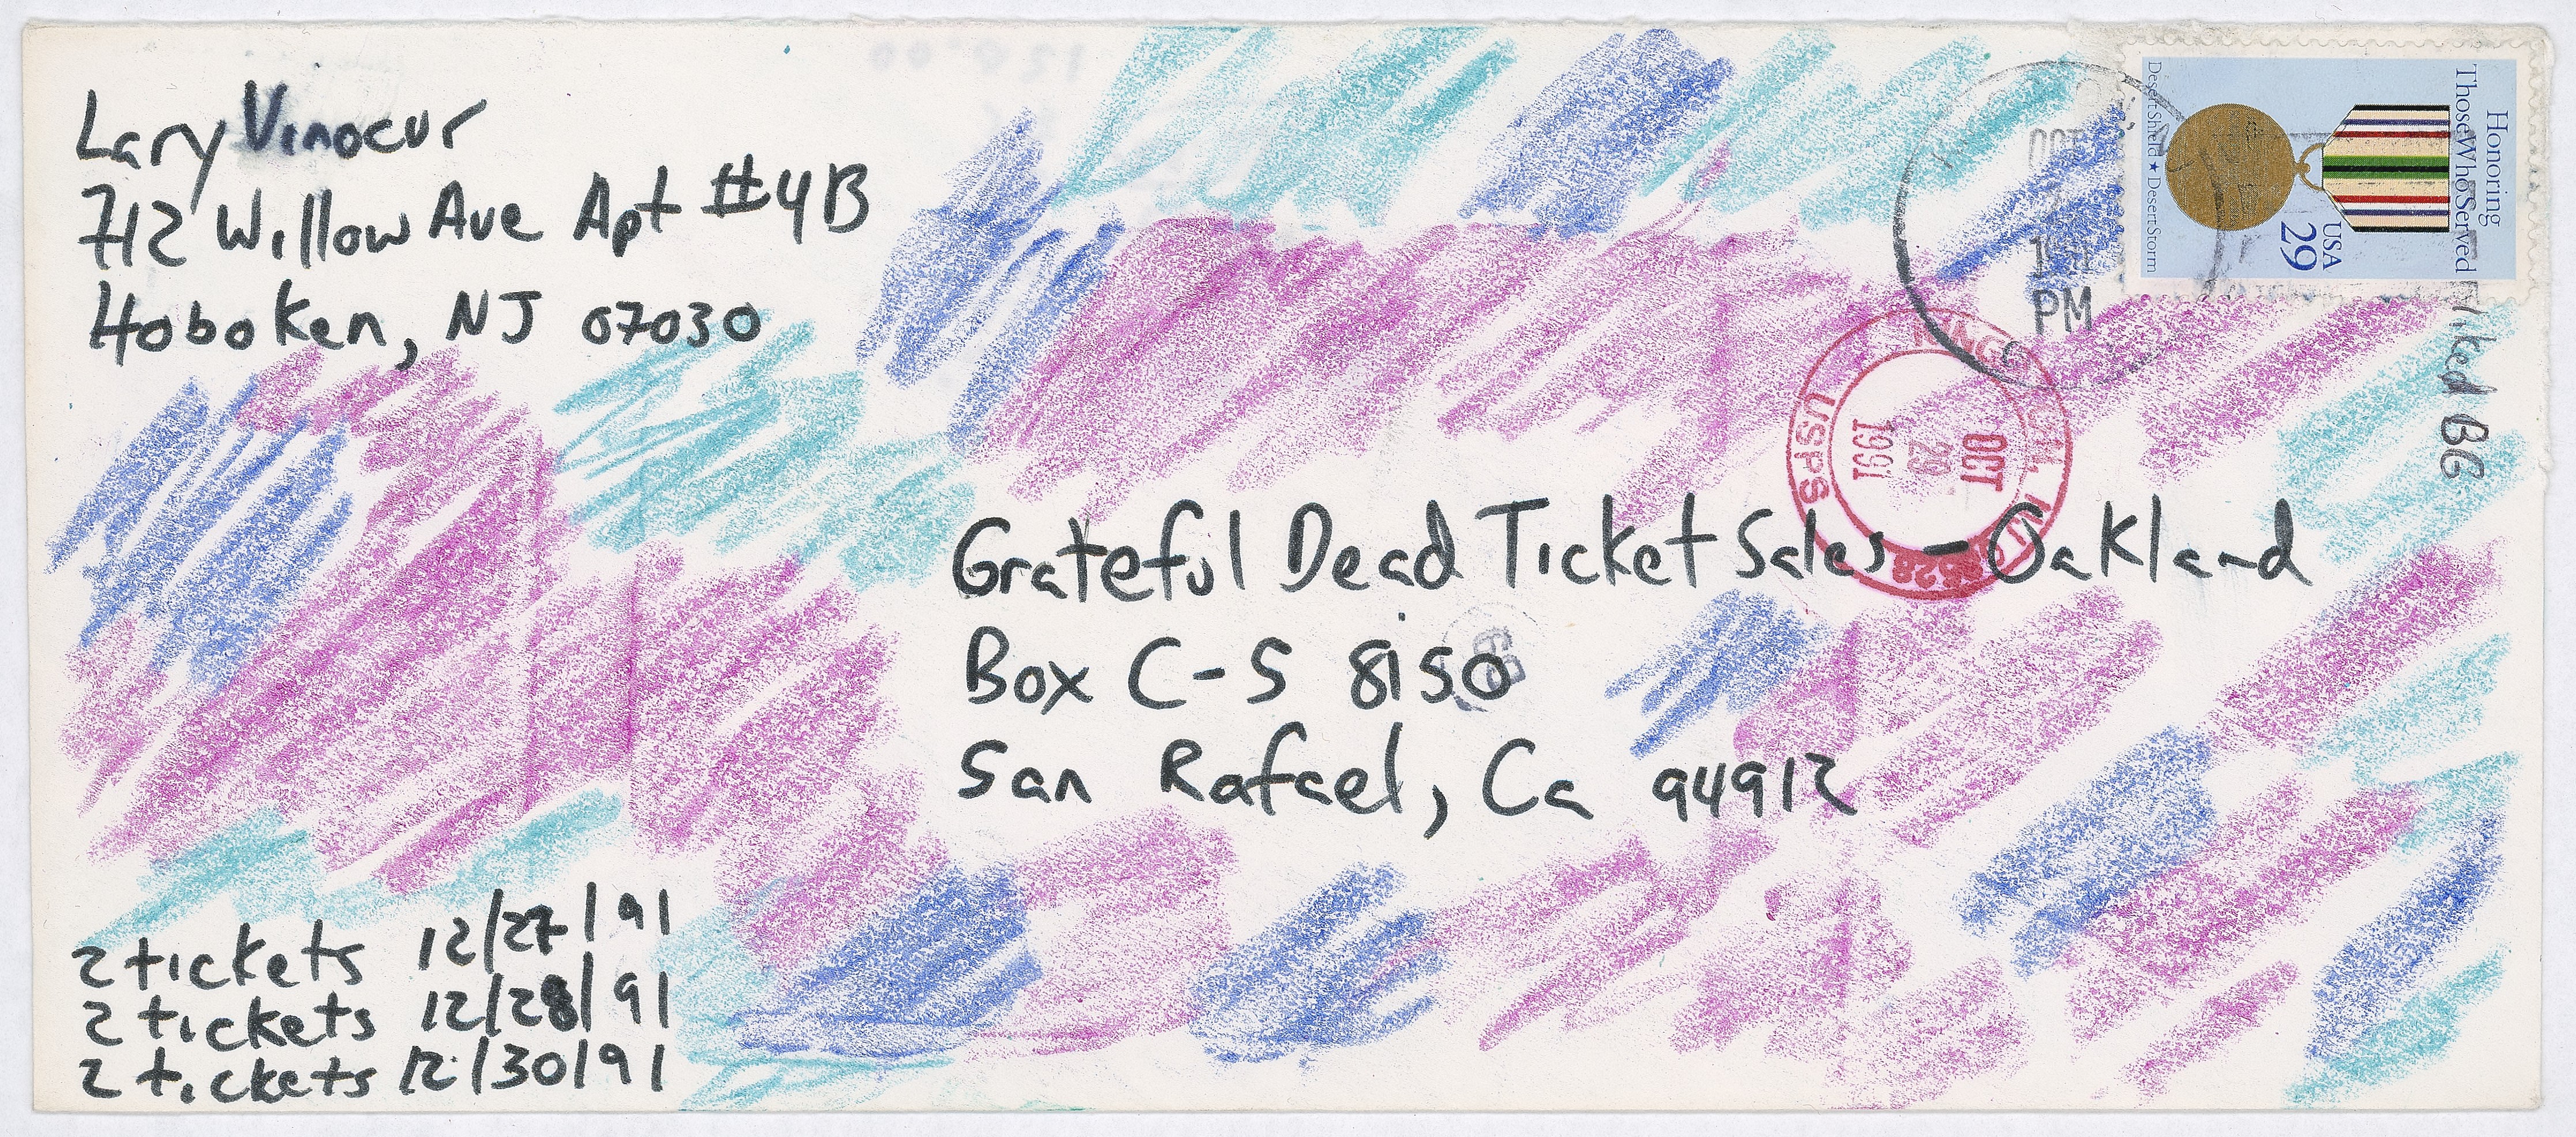 Lary Vinocur
712 Willow Ave Apt #4B
Hoboken, NJ 07030
Honoring
Those Who Served
USA
29
Desert Shield ★ Desert Storm
OCT
PM
OCT
29
1991
USPS
liked BG
Grateful Dead Ticket Sales - Oakland
Box C-S 8150
San Rafael, Ca 94912
2 tickets 12/27/91
2 tickets 12/28/91
2 tickets 12/30/91